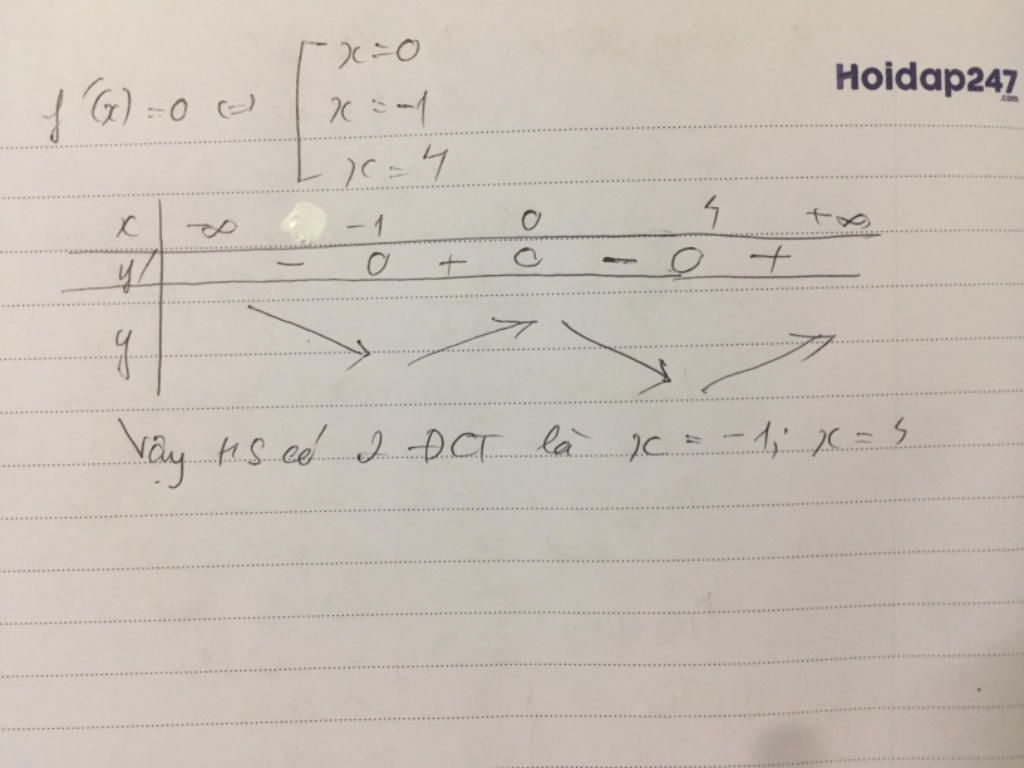 Hoidap247
.com
x=0
f'(x)=0 (=) x=-1
x=4
x -∞ -1 0 4 +∞
y' - 0 + 0 - 0 +
y
Vậy HS có 2 ĐCT là x = -1; x = 4